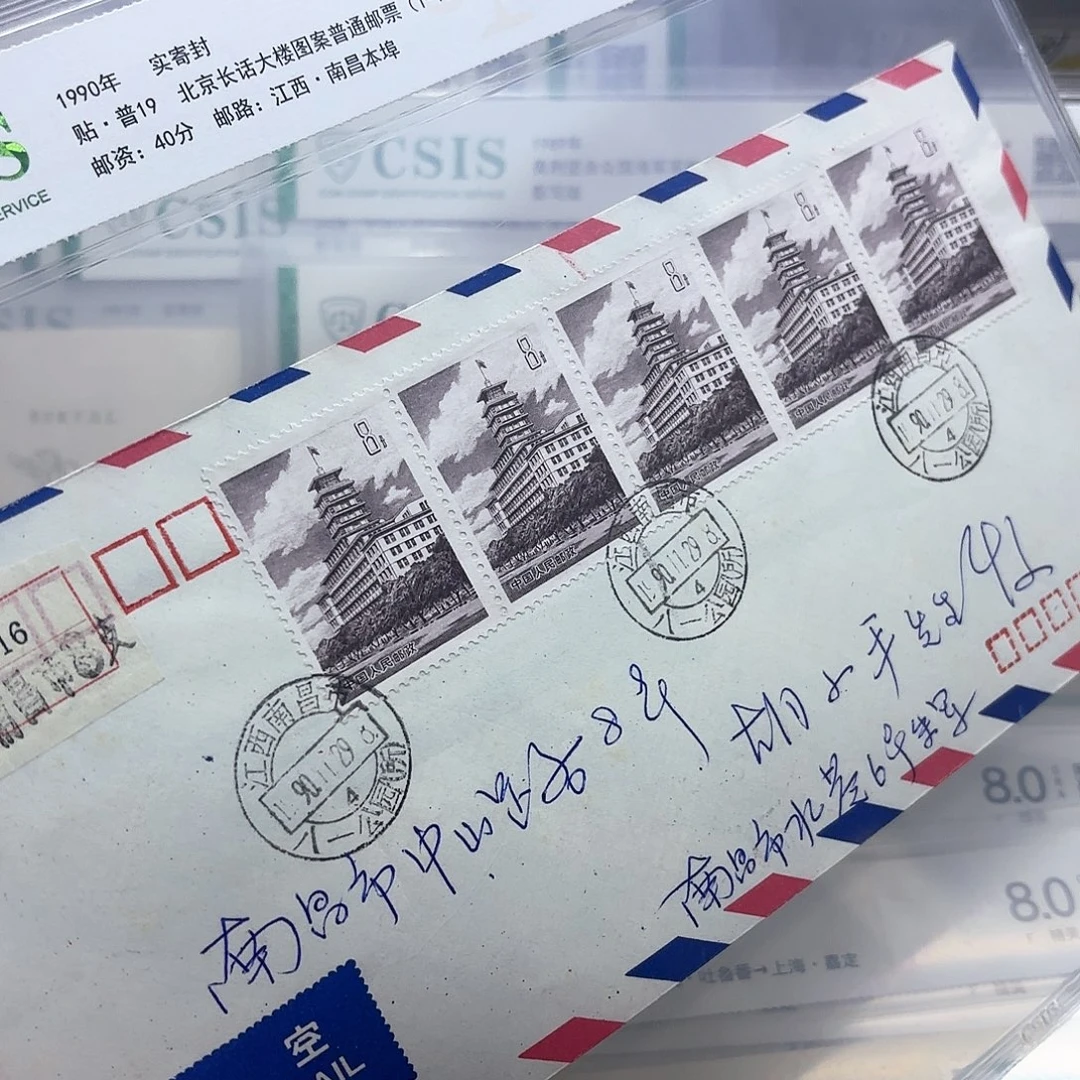 1990年 实寄封
贴·普19 北京长话大楼图案普通邮票(
邮资:40分 邮路:江西·南昌本埠
SERVICE
CSIS
CSIS
CSIS
8分
8分
8分
8分
8分
中国人民邮政
中国人民邮政
中国人民邮政
中国人民邮政
16
江西南昌
90.11.29
4
八一公园(所)
江西南昌
90.11.29
4
八一公园(所)
江西南昌
90.11.29
4
八一公园(所)
南昌市中山路8号
胡小平先生收
南昌市水巷6号朱寄
空
AIL
8.0
8.0
吐鲁番→上海·嘉定